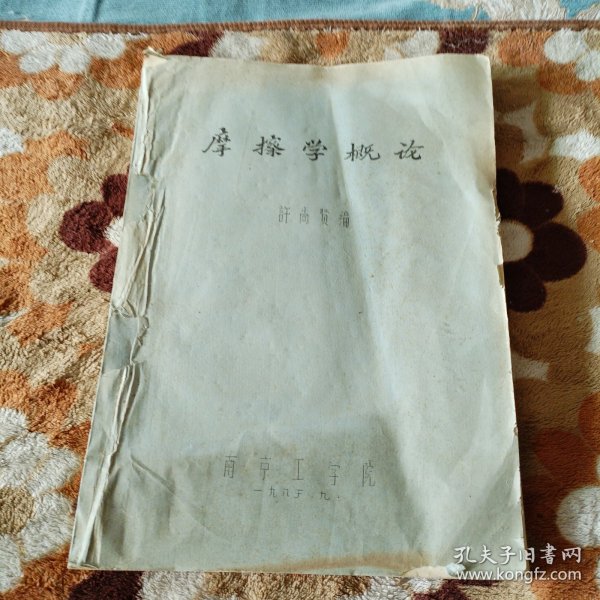 摩擦学概论
許尚贤编
南京工学院
一九八三.九.
孔夫子旧书网
www.kongfz.com